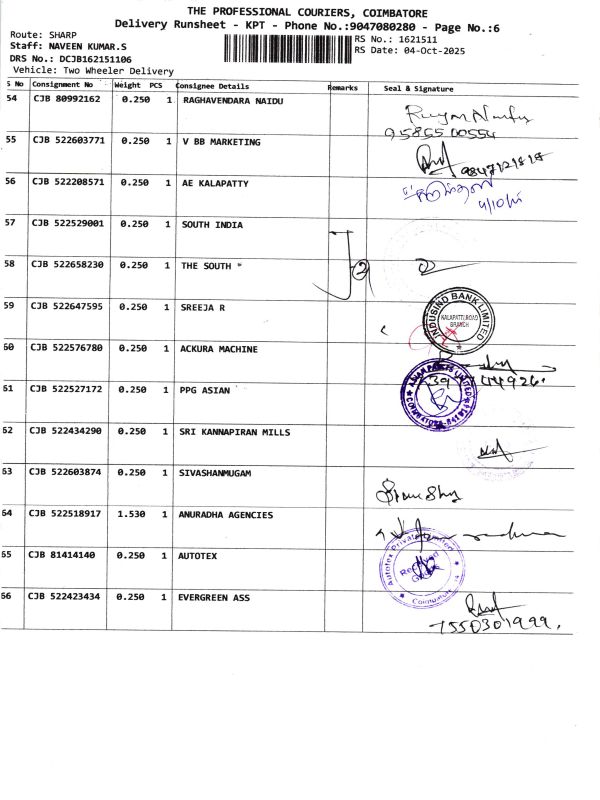 THE PROFESSIONAL COURIERS, COIMBATORE
Delivery Runsheet - KPT - Phone No.:9047080280 - Page No.:6
Route: SHARP
Staff: NAVEEN KUMAR.S
DRS No.: DCJB162151106
Vehicle: Two Wheeler Delivery
RS No.: 1621511
RS Date: 04-Oct-2025
S No Consignment No Weight PCS Consignee Details Remarks Seal & Signature
54 CJB 80992162 0.250 1 RAGHAVENDARA NAIDU
9585500554
55 CJB 522603771 0.250 1 V BB MARKETING
56 CJB 522208571 0.250 1 AE KALAPATTY
4/10/25
57 CJB 522529001 0.250 1 SOUTH INDIA
58 CJB 522658230 0.250 1 THE SOUTH "
59 CJB 522647595 0.250 1 SREEJA R
INDUSIND BANK LIMITED
KALAPATTI ROAD
BRANCH
60 CJB 522576780 0.250 1 ACKURA MACHINE
61 CJB 522527172 0.250 1 PPG ASIAN
62 CJB 522434290 0.250 1 SRI KANNAPIRAN MILLS
63 CJB 522603874 0.250 1 SIVASHANMUGAM
64 CJB 522518917 1.530 1 ANURADHA AGENCIES
65 CJB 81414140 0.250 1 AUTOTEX
Autotex Private Limited
Received
Coimbatore
66 CJB 522423434 0.250 1 EVERGREEN ASS
7550301999.